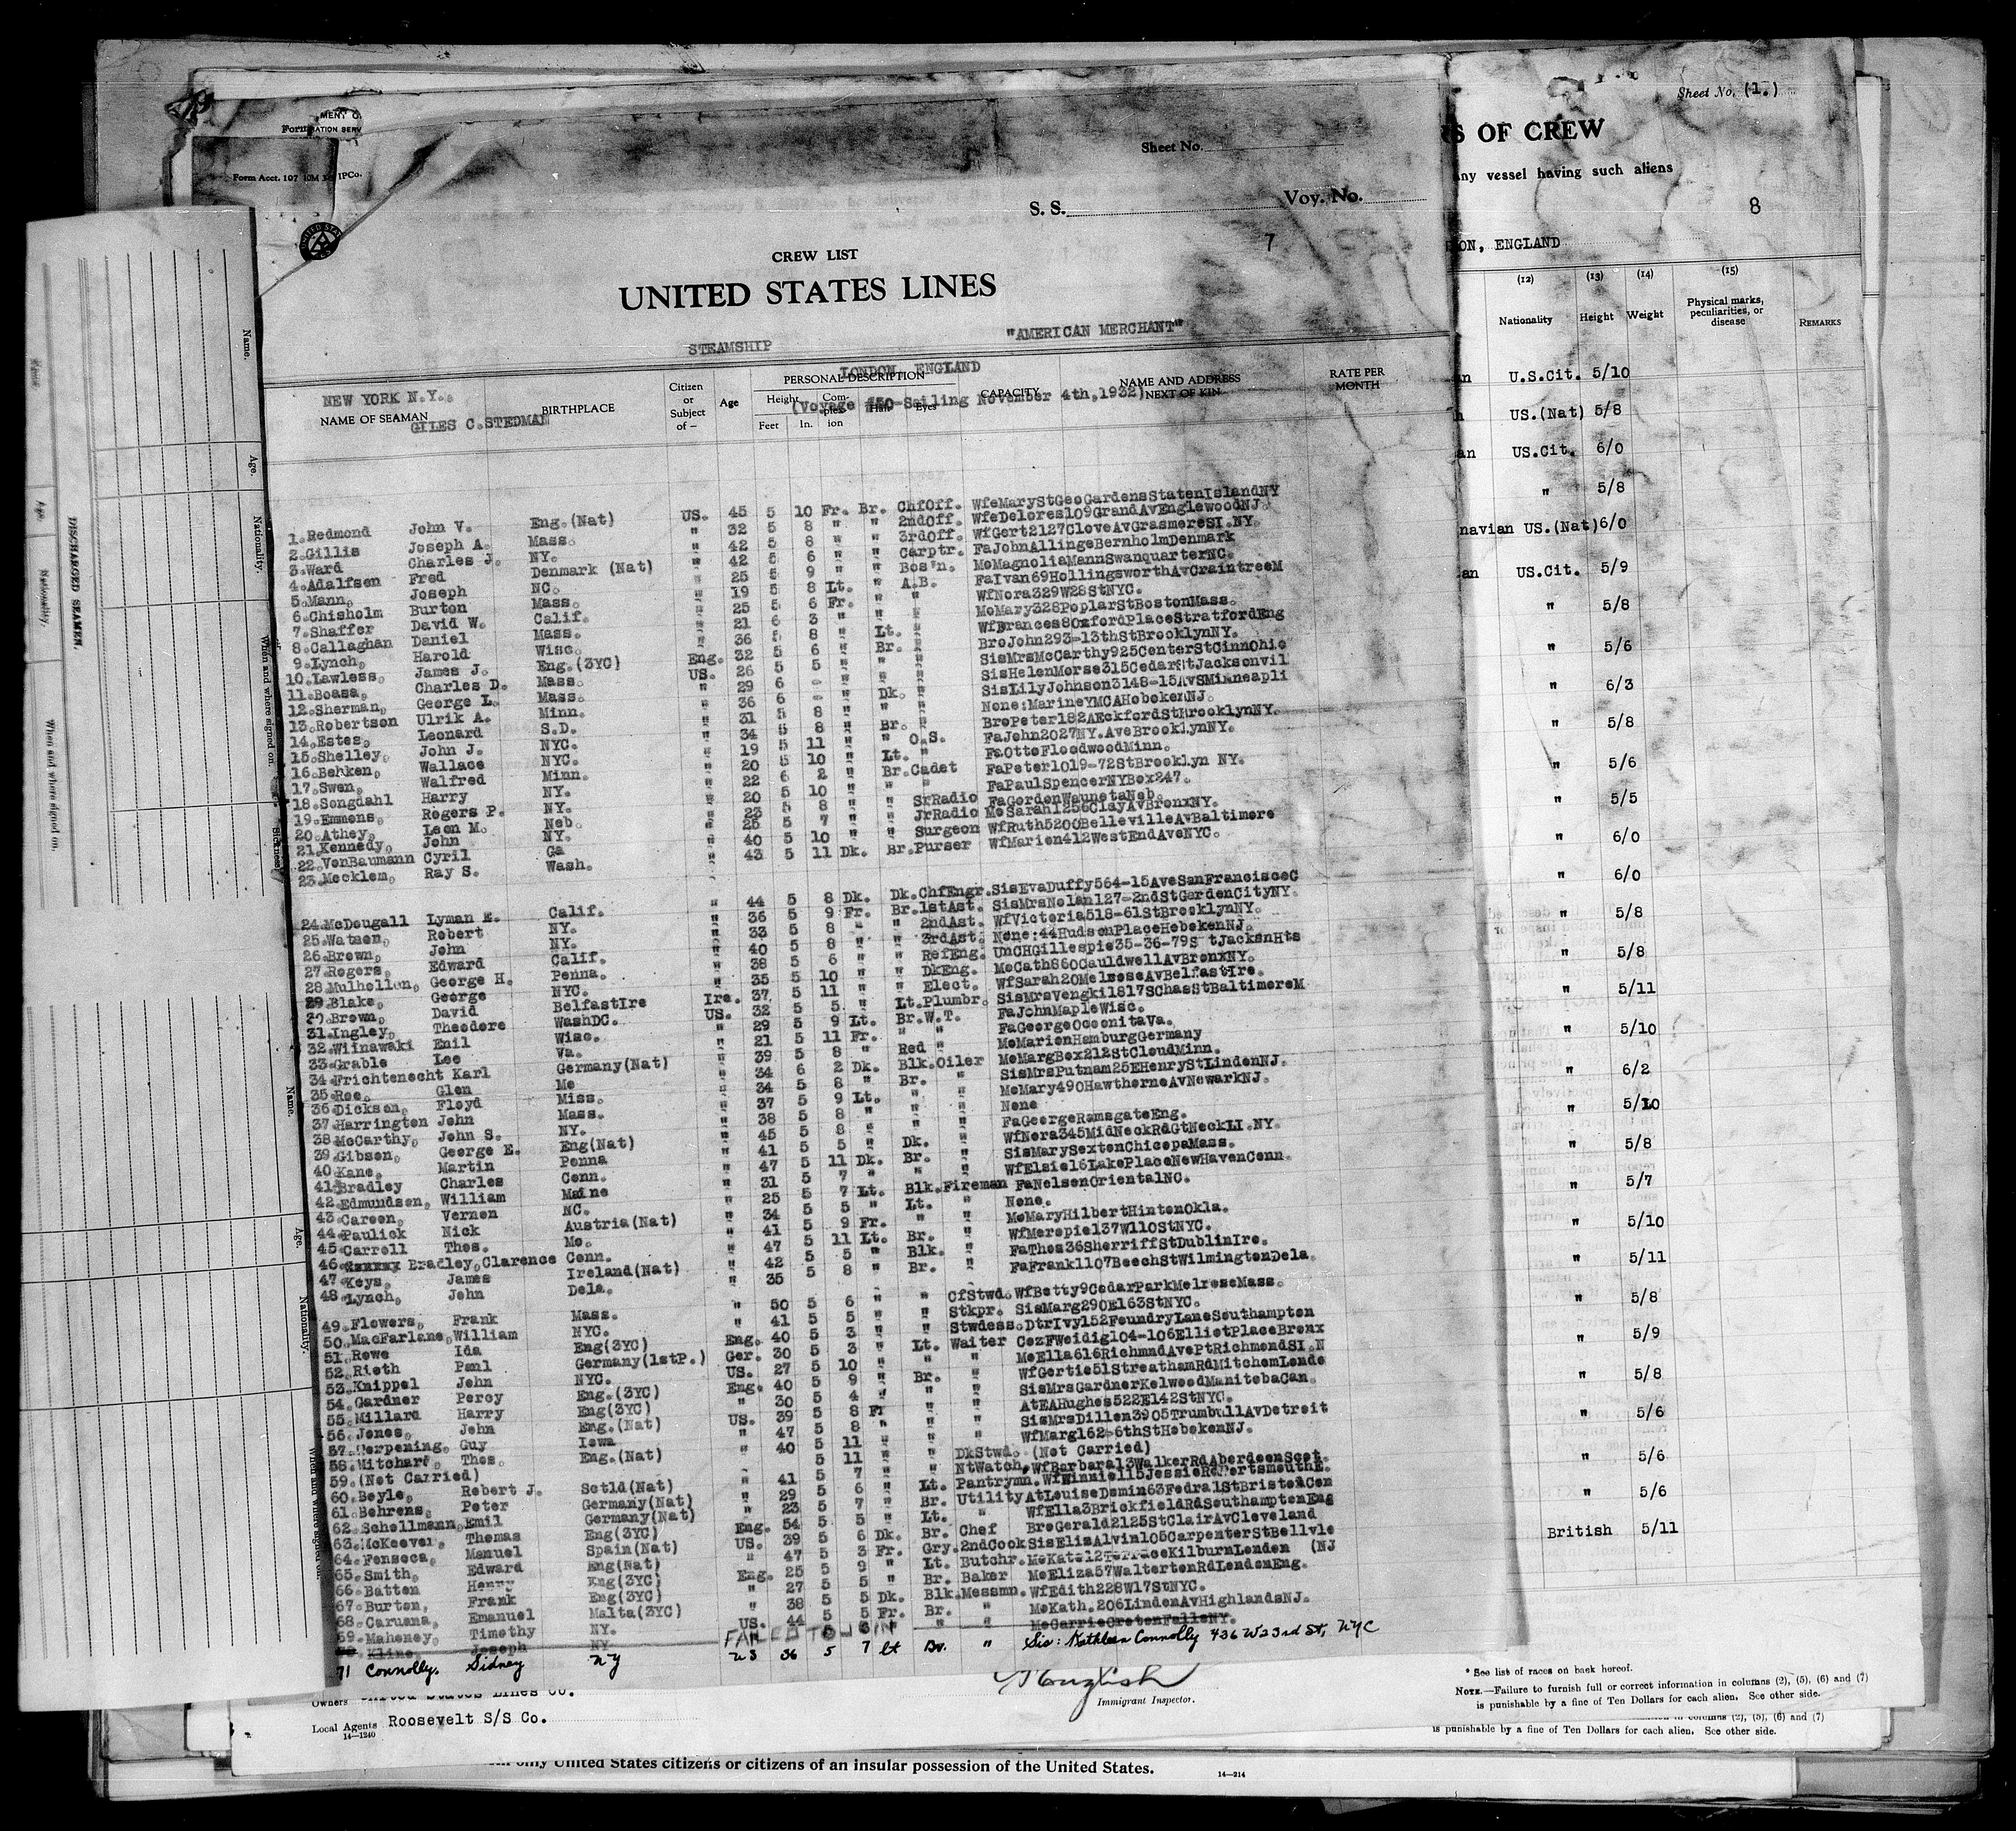 MENT O.
Form
ATION SERV
Form Acct. 107 10M
IPCo.
Sheet No.
S. S. Voy. No.
7
CREW LIST
UNITED STATES LINES
STEAMSHIP "AMERICAN MERCHANT"
LONDON, ENGLAND
NEW YORK N.Y.
(Voyage #50-Sailing November 4th,1932)
GILES C.STEDMAN
NAME OF SEAMAN BIRTHPLACE Citizen or Subject of — Age PERSONAL DESCRIPTION Height Feet In. Com-plex-ion Hair Eyes CAPACITY NAME AND ADDRESS NEXT OF KIN RATE PER MONTH
1.Redmond John V. Eng.(Nat) US. 45 5 10 Fr. Br. ChfOff. WfeMaryStGeoGardensStatenIslandNY
2.Gillis Joseph A. Mass. " 32 5 8 " " 2ndOff. WfeDelores109GrandAvEnglewoodNJ.
3.Ward Charles J. NY. " 42 5 8 " " 3rdOff. WfGert2127CloveAvGrasmereSI.NY.
4.Adalfsen Fred Denmark (Nat) " 42 5 6 " " Carptr. FaJohnAllingeBernholmDenmark
5.Mann, Joseph NC. " 25 5 9 " " Bos'n. MoMagnoliaMannSwanquarterNC.
6.Chisholm Burton Mass. " 19 5 8 Lt. " A.B. FaIvan69HollingsworthAvCraintreeM
7.Shaffer David W. Calif. " 25 5 6 Fr. " " WfNora329W28StNYC.
8.Callaghan Daniel Mass. " 21 6 3 " " " MoMary328PoplarStBostonMass.
9.Lynch, Harold Wisc. " 36 5 8 " Lt. " WfFrances80xfordPlaceStratfordEng
10.Lawless, James J. Eng.(3YC) Eng. 32 5 6 " Br. " BroJohn293-13thStBrooklynNY.
11.Boasa, Charles D. Mass. US. 26 5 5 " " " SisMrsMcCarthy925CenterStCinnOhio
12.Sherman, George L. Mass. " 29 6 - " " " SisHelenMorse315CedarStJacksonvil
13.Robertson Ulrik A. Minn. " 36 6 - " Dk. " SisLilyJohnson3148-15AvSMinneapli
14.Estes, Leonard S.D. " 31 5 8 " " " None:MarineYMCAHobokenNJ.
15.Shelley, John J. NYC. " 34 5 8 " Br. " BroPeter182AEckfordStBrooklynNY.
16.Behken, Wallace NYC. " 19 5 11 " " O.S. FaJohn2027NY.AveBrooklynNY.
17.Swen, Walfred Minn. " 20 5 10 " Lt. " FaOttoFloodwoodMinn.
18.Songdahl Harry NY. " 22 6 2 " Br.Cadet FaPeter1019-72StBrooklyn NY.
19.Emmons, Rogers P. NY. " 20 5 10 " " " FaPaulSpencerNYBox247.
20.Athey, Leon M. Neb. " 23 5 8 " " SrRadio FaGordonWaunetaNeb.
21.Kennedy, John NY. " 25 5 7 " " JrRadio MoSarah1256ClayAvBronxNY.
22.VonBaumann Cyril Ga " 40 5 10 " " Surgeon WfRuth5200BellevilleAvBaltimore
23.Mecklem, Ray S. Wash. " 43 5 11 Dk. Br.Purser WfMarion412WestEndAveNYC.
24.McDougall Lyman E. Calif. " 44 5 8 Dk. Dk.ChfEngr.SisEvaDuffy564-15AveSanFranciscoC
25.Watson, Robert NY. " 36 5 9 Fr. Br.1stAst. SisMrsNolan127-2ndStGardenCityNY.
26.Brown, John NY. " 33 5 8 " " 2ndAst. WfVictoria518-61StBrooklynNY.
27.Rogers, Edward Calif. " 40 5 8 " " 3rdAst. None:44HudsonPlaceHobokenNJ.
28.Mulhollen, George H. Penna. " 38 5 6 " " RefEng. UnCHGillespie35-36-79S tJacksnHts
29.Blake, George NYC. " 35 5 10 " " DkEng. MoCath860CauldwellAvBronxNY.
30.Brown, David BelfastIre Ire. 37 5 11 " " Elect. WfSarah20MelroseAvBelfastIre.
31.Ingley, Theodore WashDC. US. 32 5 5 " Lt.Plumbr. SisMrsVengki1817SChasStBaltimoreM
32.Wiinawaki Emil Wisc. " 29 5 9 Lt. Br.W.T. FaJohnMapleWisc.
33.Grable Lee Va. " 21 5 11 Fr. " " FaGeorgeOcconitaVa.
34.Frichtenecht Karl Germany(Nat) " 39 5 8 " Red " MoMarionHamburgGermany
35.Roe, Glen Mo " 34 6 2 Dk. Blk.Oiler MoMargBox212StCloudMinn.
36.Dickson, Floyd Miss. " 34 5 8 " Br. " SisMrsPutnam25EHenryStLindenNJ.
37.Harrington John Mass. " 37 5 9 Lt. " " MoMary490HawthorneAvNewarkNJ.
38.McCarthy, John S. NY. " 38 5 8 " " " None
39.Gibson, George E. Eng(Nat) " 45 5 8 " " " FaGeorgeRamsgateEng.
40.Kane, Martin Penna " 41 5 5 " Dk. " WfNora345MidNeckRdGtNeckLI.NY.
41.Bradley Charles Conn. " 47 5 11 Dk. Br. " SisMarySextonChicopaMass.
42.Edmundsen, William Maine " 31 5 7 " " " WfElsie16LakePlaceNewHavenConn.
43.Careon, Vernon NC. " 25 5 7 Lt. Blk.Fireman FaNelsonOrientalNC.
44.Paulick Nick Austria(Nat) " 34 5 5 " Lt. " None.
45.Carroll Thos. Mo. " 41 5 9 Fr. " " MoMaryHilbertHintonOkla.
46. Bradley,Clarence Conn. " 47 5 11 Lt. Br. " WfMeropie137W110StNYC.
47.Keys, James Ireland(Nat) " 42 5 5 " Blk. " FaThos36SherriffStDublinIre.
48.Lynch, John Dela. " 35 5 8 " Br. " FaFrank1107BeechStWilmingtonDela.
49.Flowers, Frank Mass. " 50 5 6 " " CfStwd.WfBetty9CedarParkMelroseMass.
50.MacFarlane,William NYC. " 41 5 5 " " Stkpr. SisMarg290E163StNYC.
51.Rowe Ida Eng(3YC) Eng. 40 5 3 " " Stwdess.DtrIvy152FoundryLaneSouthampton
52.Rieth Paul Germany(1stP.) Ger. 30 5 3 " Lt. Waiter CozFWeidig104-106ElliotPlaceBronx
53.Knippel John NYC. US. 27 5 10 " " " MoElla616RichmndAvePtRichmondSI.N
54.Gardner Percy Eng.(3YC) Eng. 40 5 9 " Br. " WfGertie51StreathamRdMitchemLonde
55.Millard Harry Eng(3YC) " 30 5 4 " " " SisMrsGardnerKelwoodManitobaCan.
56.Jones, John Eng.(Nat) US. 39 5 8 Fr " " AtEAHughes522E142StNYC.
57.Corpening, Guy Iowa " 47 5 8 " " " SisMrsDillen3905TrumbullAvDetroit
58.Mitchard, Thos. Eng.(Nat) " 40 5 11 " " " WfMarg162-6thStHobokenNJ.
59.(Not Carried) DkStwd. (Not Carried)
60.Boyle, Robert J. Sctld(Nat) " 41 5 11 " " NtWatch.WfBarbara13WalkerRdAberdeenScot.
61.Behrens, Peter Germany(Nat) " 29 5 7 " Lt. Pantrymn.WfWinnie115JessieRdPortsmouthE.
62.Schellmann,Emil Germany(Nat) " 23 5 6 " Br. UtilityAtLouiseDemin63FedralStBristolCon
63.McKeever, Thomas Eng(3YC) Eng. 54 5 7 " Lt. " WfElla3BrickfieldRdSouthamptonEng
64.Fonseca, Manuel Spain(Nat) US. 39 5 6 Dk. Br. Chef BroGerald2125StClairAvCleveland
65.Smith, Edward Eng(Nat) " 47 5 3 Fr. Gry.2ndCookSisElizAlvin105CarpenterStBellvle
66.Batten Henry Eng(3YC) Eng. 25 5 9 " Lt. Butchr.MoKate12TerraceKilburnLonden (NJ
67.Burton, Frank Eng(3YC) " 27 5 5 " Br. Baker MoEliza57WaltertonRdLondenEng.
68.Caruana, Emanuel Malta(3YC) " 38 5 5 Dk. Blk.Messmn.WfEdith228W17StNYC.
69.Mahoney, Timothy NY. US. 44 5 5 Fr. Br. " MoKath.206LindenAvHighlandsNJ.
Kline, Joseph NY FAILED TO JOIN MoCarrieCrotonFallsNY.
71 Connolly. Sidney NY US 36 5 7 lt Br. " Sis: Kathleen Connolly 436 W23rd St, NYC
Owners United States Lines Co.
Immigrant Inspector.
Local Agents Roosevelt S/S Co.
14—1240
only United States citizens or citizens of an insular possession of the United States.
14—214
Sheet No. (1.)
S OF CREW
any vessel having such aliens
8
ON, ENGLAND
(12) (13) (14) (15)
Nationality Height Weight Physical marks, peculiarities, or disease REMARKS
U.S.Cit. 5/10
US.(Nat) 5/8
US.Cit. 6/0
" 5/8
navian US.(Nat) 6/0
US.Cit. 5/9
" 5/8
" 5/6
" 6/3
" 5/8
" 5/6
" 5/5
" 6/0
" 6/0
" 5/8
" 5/8
" 5/11
" 5/10
" 6/2
" 5/10
" 5/8
" 5/7
" 5/10
" 5/11
" 5/8
" 5/9
" 5/8
" 5/6
" 5/6
" 5/6
British 5/11
* See list of races on back hereof.
NOTE.—Failure to furnish full or correct information in columns (2), (5), (6) and (7)
is punishable by a fine of Ten Dollars for each alien. See other side.
in columns (2), (5), (6) and (7)
is punishable by a fine of Ten Dollars for each alien. See other side.
Name.
Age.
Nationality.
When and where signed on.
DISCHARGED SEAMEN.
Name.
Age.
Nationality.